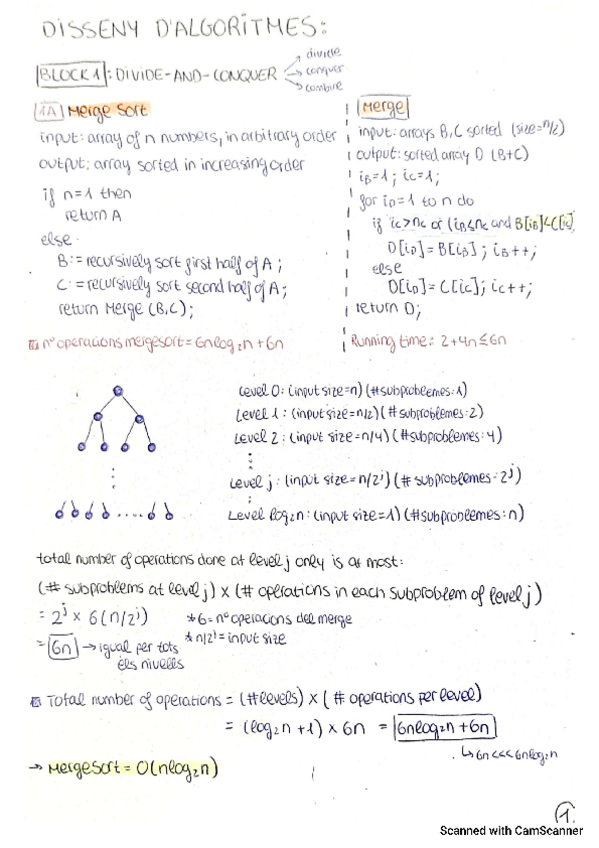 DISSENY D'ALGORITMES:
BLOCK 1: DIVIDE-AND-CONQUER
divide
conquer
combine
1A Merge Sort
input: array of n numbers, in arbitrary order
output: array sorted in increasing order
if n=1 then
return A
else
B:= recursively sort first half of A;
C:= recursively sort second half of A;
return Merge (B,C);
nº operacions mergesort = 6nlog₂n + 6n
Merge
input: arrays B,C sorted (size=n/2)
output: sorted array D (B+C)
iB=1; iC=1;
for iD=1 to n do
if iC>nC or (iB≤nB and B[iB]<C[iC]
D[iD]=B[iB]; iB++;
else
D[iD]=C[iC]; iC++;
return D;
Running time: 2+4n≤6n
Level 0: (input size=n) (#subproblemes:1)
Level 1: (input size=n/2) (#subproblemes:2)
Level 2: (input size=n/4) (#subproblemes:4)
Level j: (input size=n/2ʲ) (#subproblemes:2ʲ)
Level log₂n: (input size=1) (#subproblemes:n)
total number of operations done at level j only is at most:
(# subproblems at level j) x (# operations in each subproblem of level j)
= 2ʲ x 6(n/2ʲ) *6=nº operacions del merge
= 6n → igual per tots *n/2ʲ=input size
els nivells
Total number of operations = (#levels) x (# operations per level)
= (log₂n +1) x 6n = 6nlog₂n + 6n
↳ 6n <<< 6nlog₂n
→ MergeSort = O(nlog₂n)
1.
Scanned with CamScanner